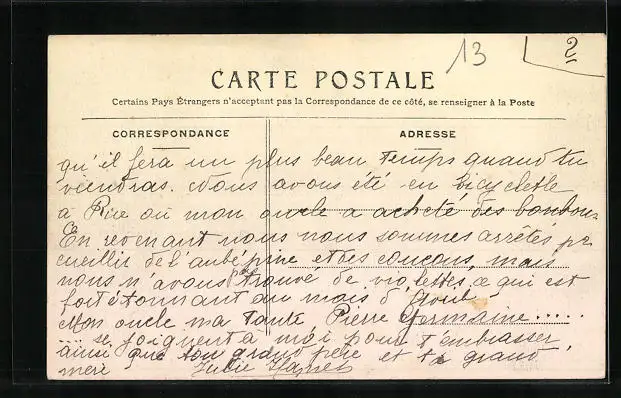 13
2
CARTE POSTALE
Certains Pays Étrangers n'acceptant pas la Correspondance de ce côté, se renseigner à la Poste
CORRESPONDANCE ADRESSE
qu'il fera un plus beau temps quand tu
viendras. Nous avons été en bicyclette
à Rue où mon oncle a acheté des bonbons
En revenant nous nous sommes arrêtés pr
cueillir de l'aubépine et des coucous, mais
nous n'avons trouvé de violettes, ce qui est
fort étonnant au mois d'
Mon oncle ma tante Pierre Germaine.....
.... se joignent à moi pour t'embrasser
ainsi que ton grand père et ta grand
mère Julie